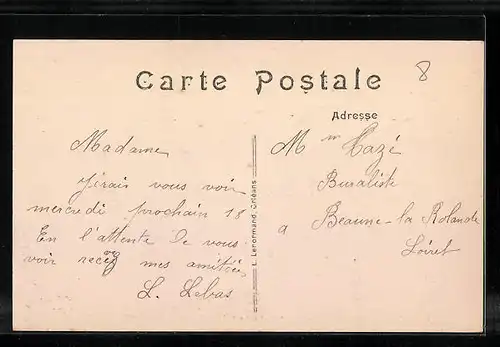 8
Carte Postale
Adresse
Madame
J'irais vous voir
mercredi prochain 18
En l'attente de vous
voir recevez mes amitiés
L. Lebas
L. Lenormand, Orléans
Mme Hazé
Buraliste
a Beaune-la Rolande
Loiret